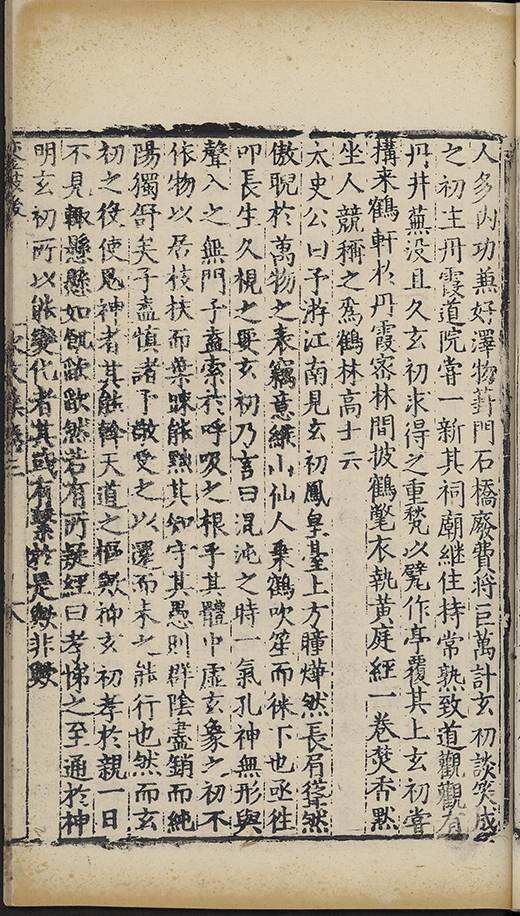 人多內功兼好澤物葑門石橋廢費將巨萬計玄初談笑成
之初主丹霞道院嘗一新其祠廟継住持常熟致道觀觀有
丹井蕪没且久玄初求得之重甃以甓作亭覆其上玄初嘗
搆来鶴軒於丹霞宻林間披鶴氅衣執黃庭經一卷焚香黙
坐人競稱之爲鶴林高士云
太史公曰予游江南見玄初鳳皇臺上方瞳燁然長眉蓰然
傲睨於萬物之表竊意緱山仙人乗鶴吹笙而徠下也亟徃
叩長生久視之要玄初乃言曰混沌之時一氣孔神無形與
聲入之無門子盍索於呼吸之根乎其體中虚玄象之初不
依物以居枝扶而葉踈能黙其知守其愚則群陰盡銷而純
陽獨舒矣子盍慎諸予敬受之以還而未之能行也然而玄
初之役使鬼神者其能斡天道之樞歟神玄初孝於親一日
不見輙懸懸如飢欿欿然若有所疑經曰孝悌之至通於神
明玄初所以能變化者其或有繫於是歟非歟